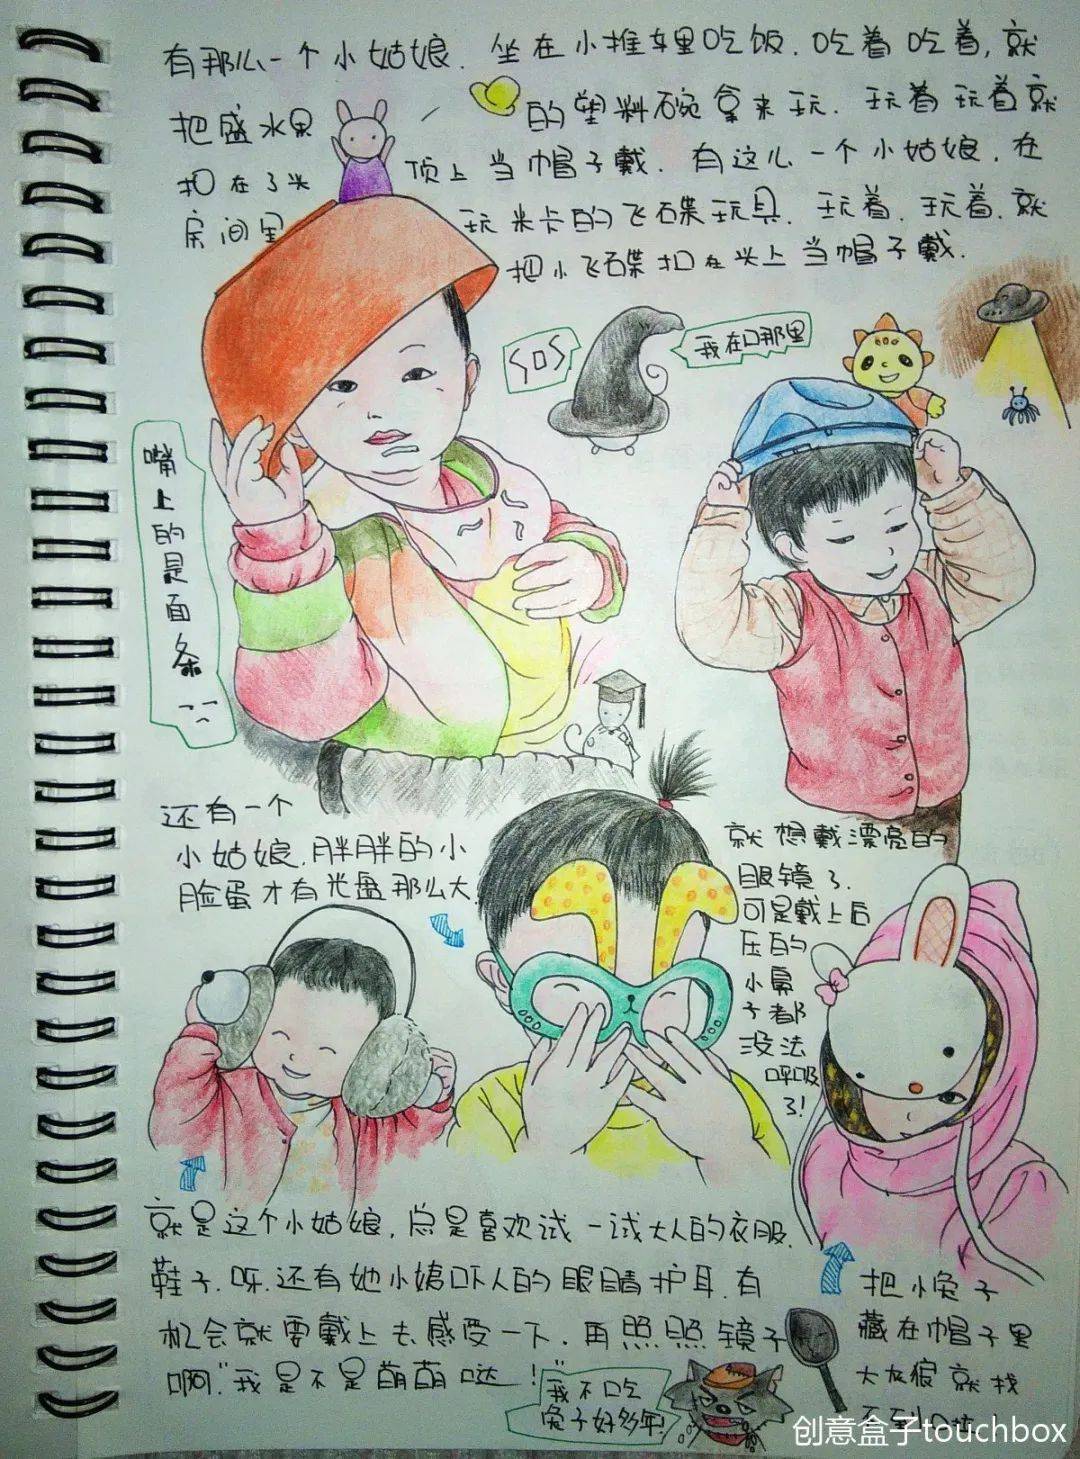 有那么一个小姑娘.坐在小推车里吃饭.吃着吃着,就
把盛水果的塑料碗拿来玩.玩着玩着就
扣在了头顶上当帽子戴.有这么一个小姑娘.在
房间里玩米卡的飞碟玩具.玩着.玩着.就
把小飞碟扣在头上当帽子戴.
SOS
我在哪里
嘴上的是面条
还有一个
小姑娘.胖胖的小
脸蛋才有光盘那么大.
就想戴漂亮的
眼镜了.
可是戴上后
压的
小鼻
子都
没法
呼吸
了!
就是这个小姑娘.总是喜欢试一试大人的衣服.
鞋子.呀.还有她小姨吓人的眼睛护耳.有
机会就要戴上去感受一下.再照照镜子
啊"我是不是萌萌哒!"
把小兔子
藏在帽子里
大灰狼就找
不到啦!
我不吃
兔子好多年!
创意盒子touchbox